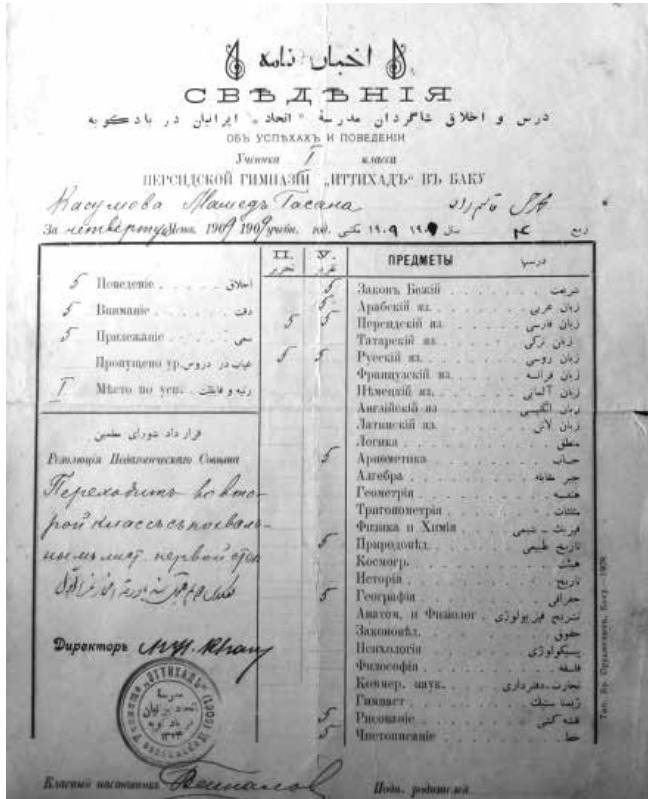 اخبار نامه
СВѢДѢНІЯ
درس و اخلاق شاگردان مدرسهٔ «اتحاد» ایرانیان در بادکوبه
ОБЪ УСПѢХАХЪ И ПОВЕДЕНІИ
Ученика I класса
ПЕРСИДСКОЙ ГИМНАЗІИ „ИТТИХАДЪ“ ВЪ БАКУ
Касумова Мамедъ Гасана
За четверту 1909 1909 учебн. год. سال ١٩٠٩ ۴ ربع
П. У. ПРЕДМЕТЫ درسها
تحریر تقریر
5 Поведеніе اخلاق
5 Вниманіе دقت
5 Прилежаніе سعی
Пропущено ур. غیاب در دروس
I Мѣсто по усп. رتبه و
5 Законъ Божій شریعت
5 Арабскій яз. زبان عربی
5 5 Персидскій яз. زبان فارسی
Татарскій яз. زبان ترکی
5 5 Русскій яз. زبان روسی
Французскій яз. زبان فرانسه
Нѣмецкій яз. زبان آلمانی
Англійскій яз زبان انگلیسی
Латинскій яз. زبان لاتن
Логика منطق
5 Ариѳметика حساب
Алгебра جبر مقابله
Геометрія هندسه
Тригонометрія مثلثات
Физика и Химія فیزیك ـ شیمی
5 Природовѣд. تاریخ طبیعی
Космогр. هیئت
Исторія تاریخ
5 Географія جغرافی
Анатом. и Физіолог. تشریح فیزیولوژی
Законовѣд. حقوق
Психологія پسیکولوژی
Философія فلسفه
Коммер. наук. تجارت ـ دفترداری
Гимнаст ژیمناستیك
5 Рисованіе نقشه کشی
5 Чистописаніе خط
قرار داد شورای معلمین
Резолюція Педагогическаго Совѣта
Переходитъ во вто-
рой классъ съ похваль-
нымъ лист. первой степ
Директоръ
„ИТТИХАДЪ“
مدرسهٔ
اتحاد ایرانیان
در بادکوبه
Классный наставникъ
Подп. родителей
Тип. Бр. Оруджевыхъ, Баку—1909.